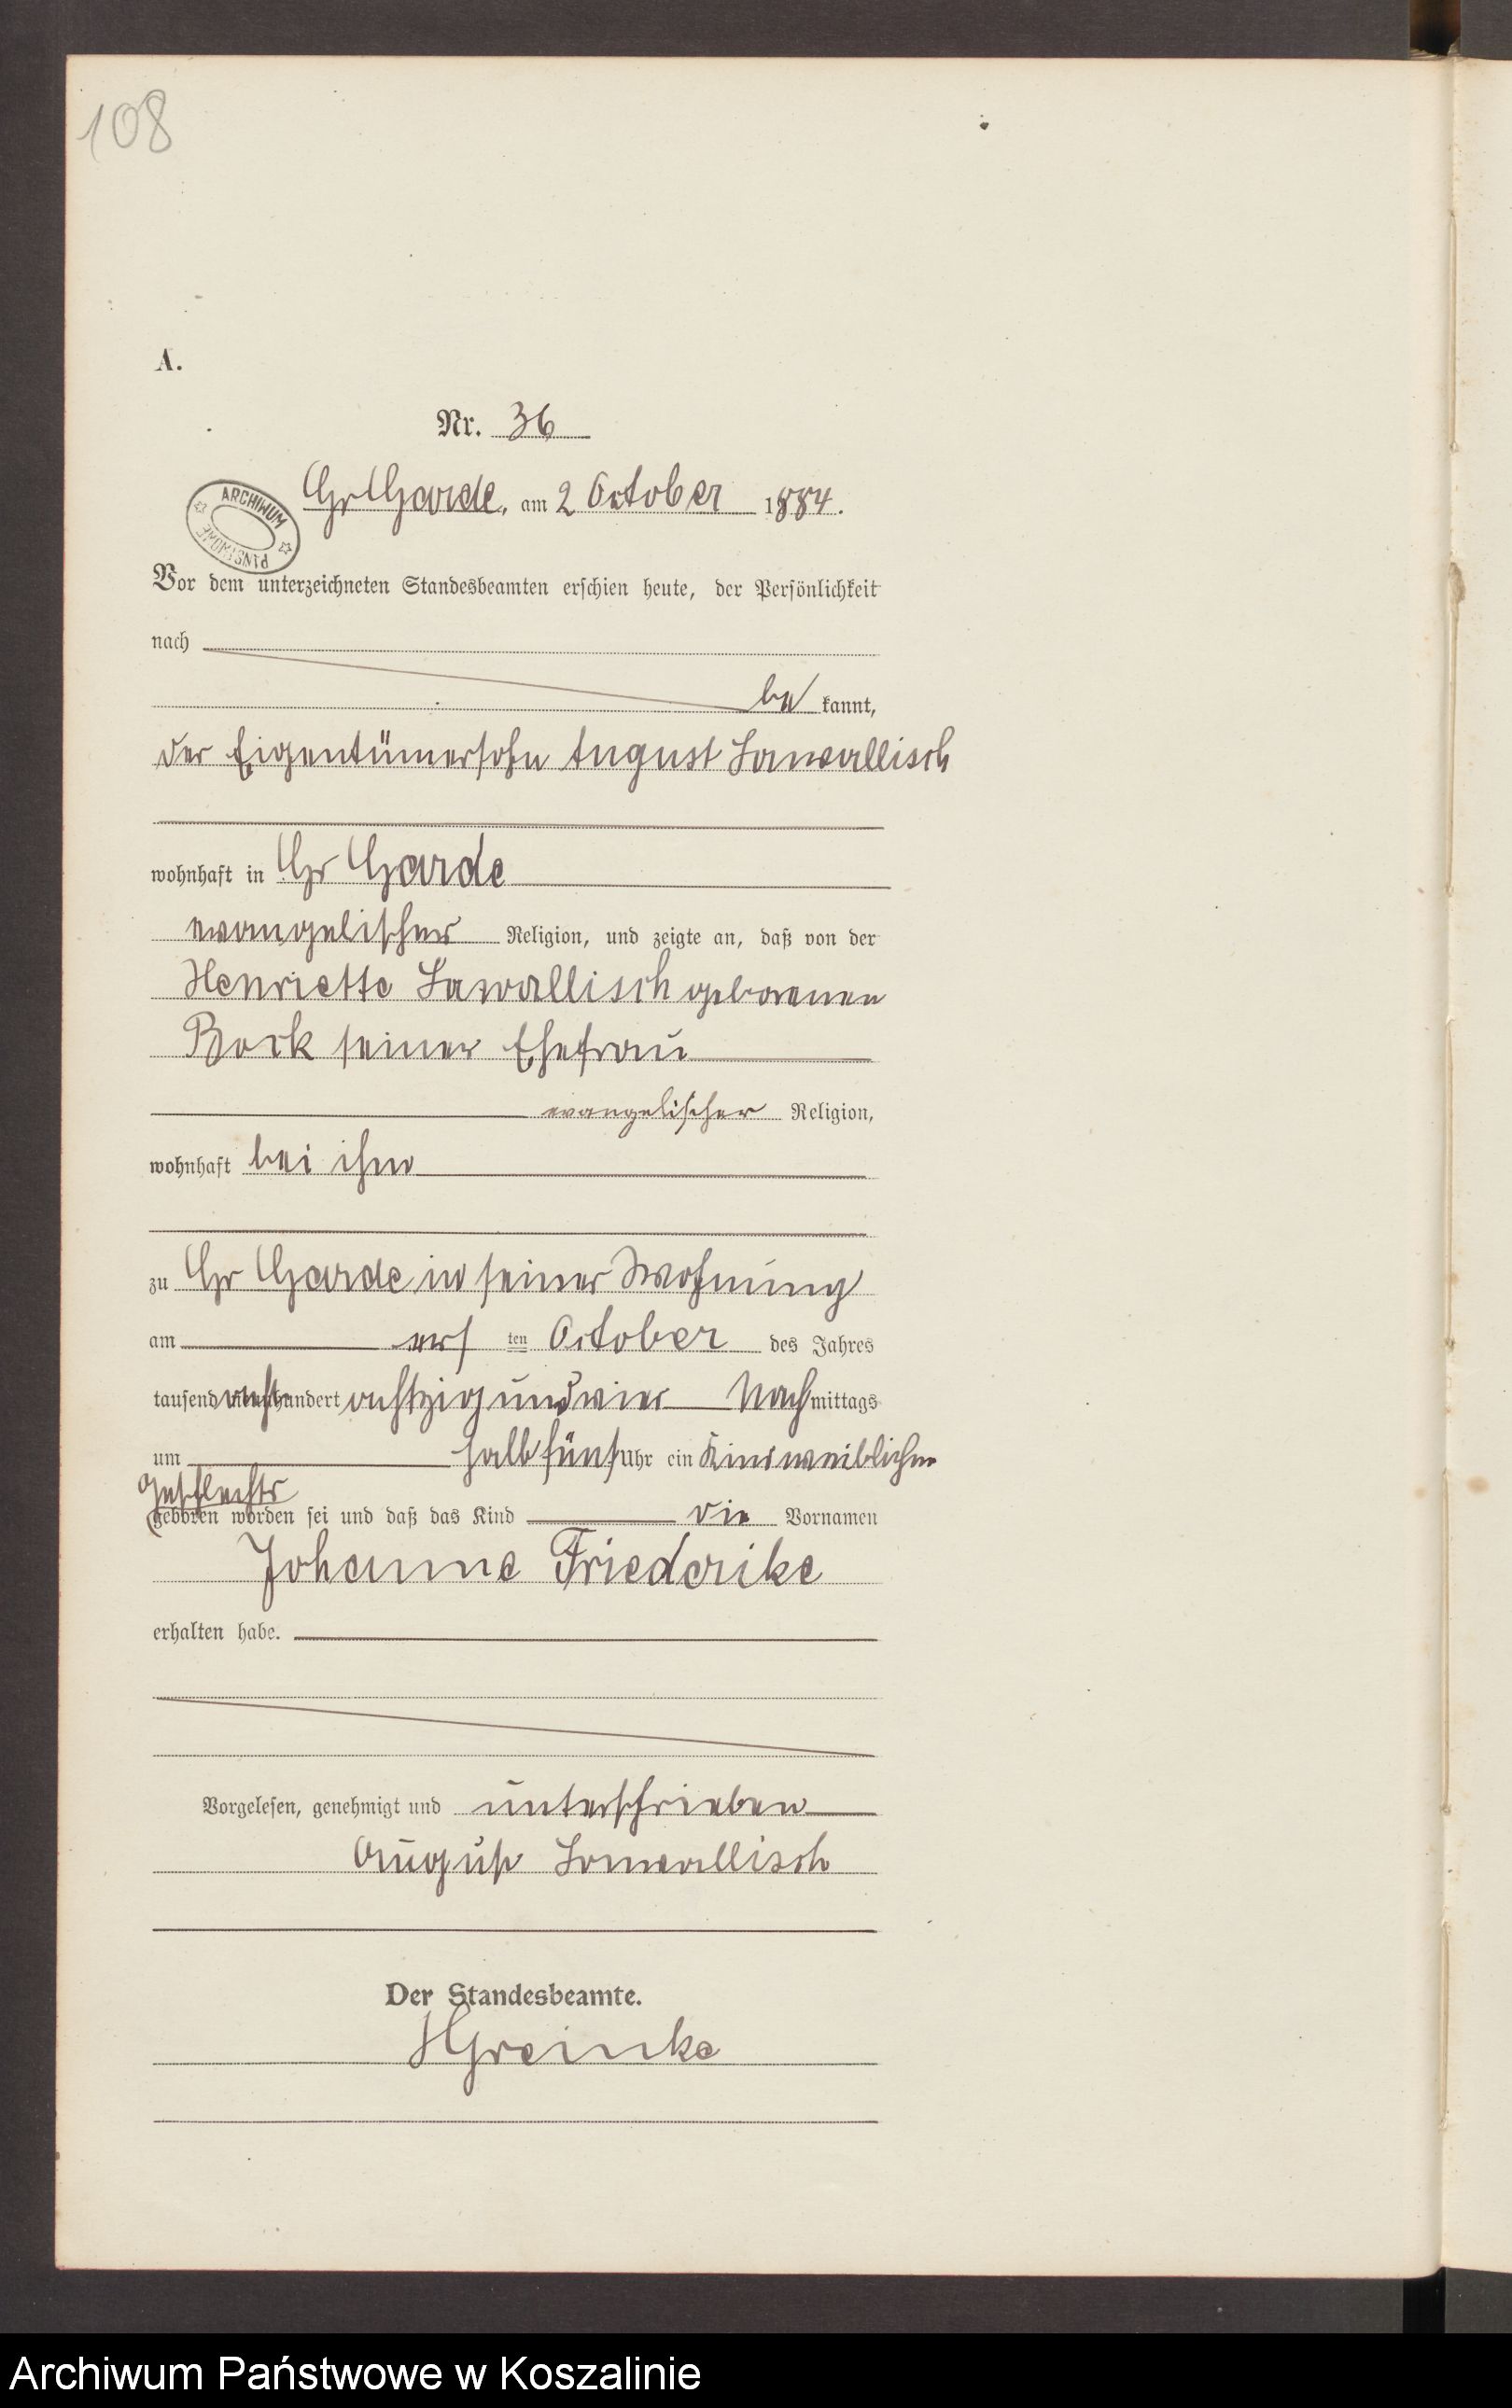 108
A.
Nr. 36
Gr Garde, am 2 October 1884.
ARCHIWUM PAŃSTWOWE
Vor dem unterzeichneten Standesbeamten erschien heute, der Persönlichkeit
nach
be kannt,
der Eigentümersohn August Lawallisch
wohnhaft in Gr Garde
evangelischer Religion, und zeigte an, daß von der
Henriette Lawallisch geborenen
Bock seiner Ehefrau
evangelischer Religion,
wohnhaft bei ihm
zu Gr Garde in seiner Wohnung
am ers ten October des Jahres
tausend acht hundert achtzig und vier Nach mittags
um halb fünf Uhr ein Kind weiblichen
Geschlechts
geboren worden sei und daß das Kind die Vornamen
Johanne Friederike
erhalten habe.
Vorgelesen, genehmigt und unterschrieben
August Lawallisch
Der Standesbeamte.
HGreinke
Archiwum Państwowe w Koszalinie